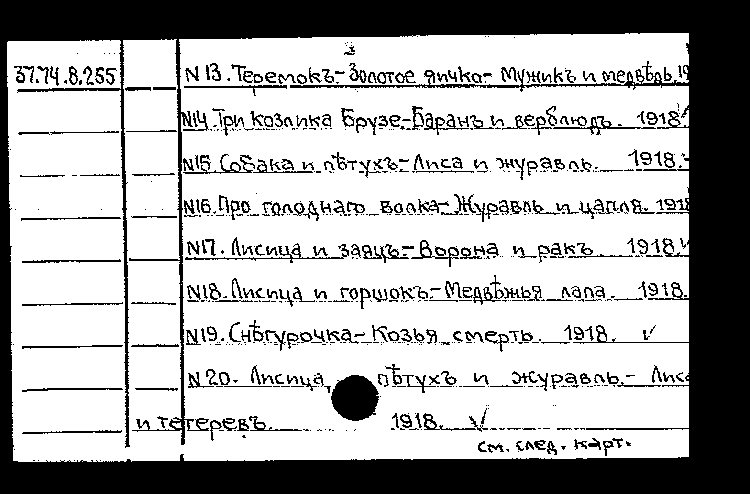 3
37.74.8.255 N 13. Теремокъ-Золотое яичко- Мужикъ и медвѣдь. 19
N14. Три козлика Брузе.-Баранъ и верблюдъ. 1918
N15. Собака и пѣтухъ-Лиса и журавль. 1918.
N16. Про голоднаго волка-Журавль и цапля. 1918
N17. Лисица и заяцъ.-Ворона и ракъ. 1918.
N18. Лисица и горшокъ.-Медвѣжья лапа. 1918.
N19. Снѣгурочка-Козья смерть. 1918. ✓
N 20. Лисица, пѣтухъ и журавль.- Лиса
и тетеревъ. 1918. ✓
см. след. карт.